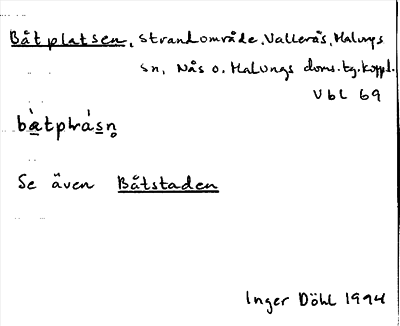 Båtplatsen, strandområde, Vallerås, Malungs
sn, Nås o. Malungs doms. tg. Koppl.
Vbl 69
bàtplrásn̥
Se även Båtstaden
Inger Döhl 1994